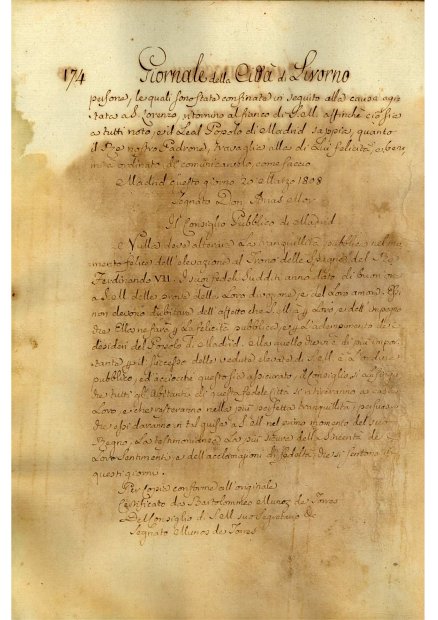 174 Giornale della Città di Livorno
persone, le quali sono state confinate in seguito alla causa agi=
tata a S. Lorenzo, ritornino al fianco di S. M. affinchè ciò sia
a tutti noto, e il Leal Popolo di Madrid sappia, quanto
il Re nostro Padrone, travaglia alla di Lui felicità,
ordinato di comunicarvelo, come faccio
Madrid questo giorno 20 Marzo 1808
Segnato Don Arias Mon
Il Consiglio Pubblico di Madrid
Nulla deve alterare la tranquillità pubblica nel mo=
mento felice dell'elevazione al Trono delle Spagne del Re
Ferdinando VII. I suoi fedeli Sudditi anno dato di buon ora
a S. M. delle prove della Loro divozione, e del Loro amore. Essi
non devono dubitare dell'affetto che S. M. à per Loro e dell'impegno
che Ella ne farà per La felicità pubblica, e per l'adempimento dei
desideri del Popolo di Madrid. Ma quello che vi è di più impor=
tante pel successo delle vedute elevate di S. M. è l'ordine
pubblico, ed acciocchè questo sia assicurato, il Consiglio
che tutti gli Abitanti di questa fedele Città si ritireranno a
Loro e che resteranno nella più perfetta tranquillità, persuaso
che essi daranno in tal guisa a S. M. nel primo momento del suo
Regno, La testimonianza La più sicura della Sincerità dei
Loro Sentimenti, e dell'acclamazioni di fedeltà che si sentono in
questi giorni.
Per copia conforme all'originale
Certificato da Bartolommeo Munoz de Torres
Del Consiglio di S. M. suo Segretario &
Segnato Munos de Torres